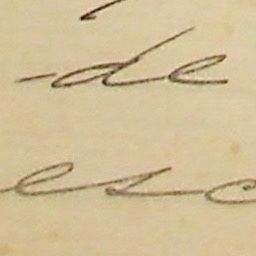 -de
esc